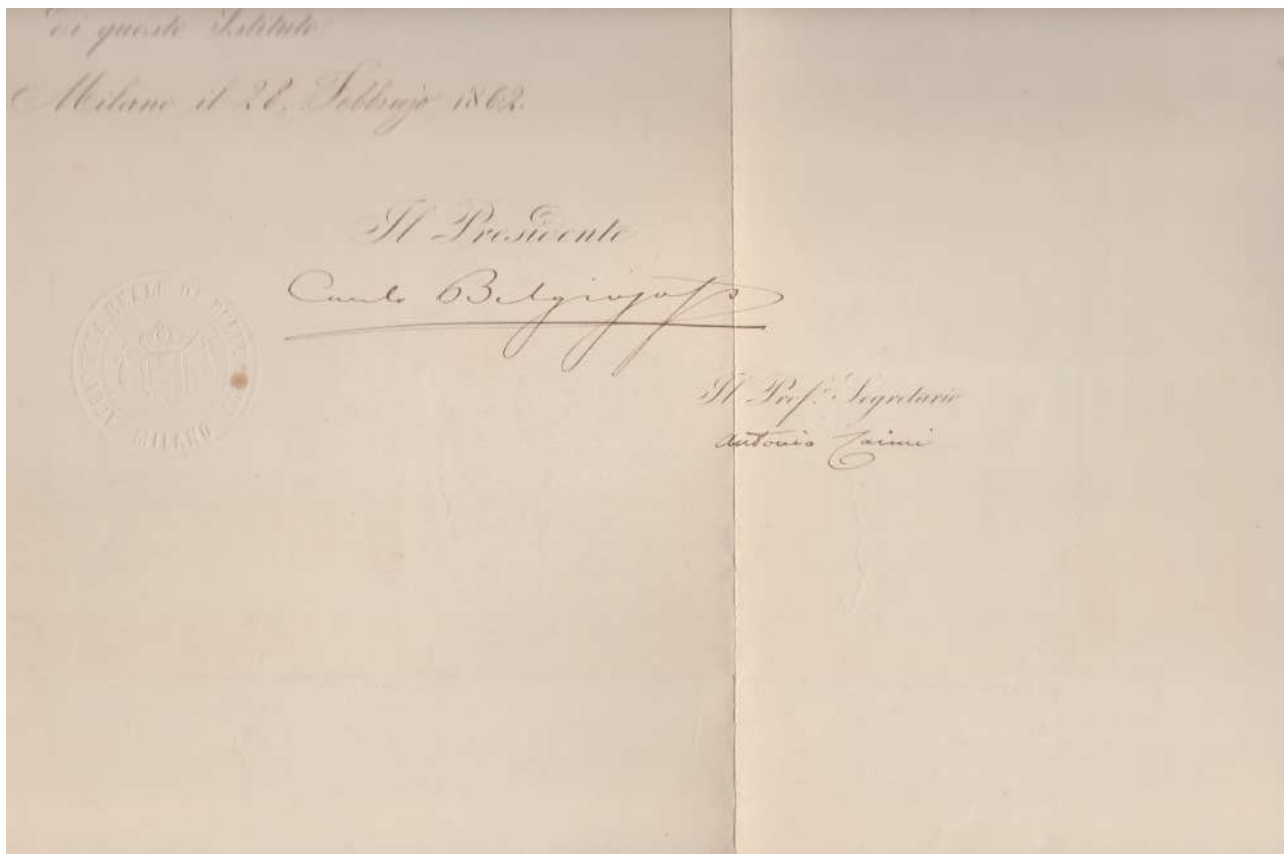 di questo Istituto.
Milano, il 28. Febbrajo 1862.
Il Presidente
Carlo Belgiojoso
REALE DI
MILANO
Il Prof.e Segretario
Antonio Caimi